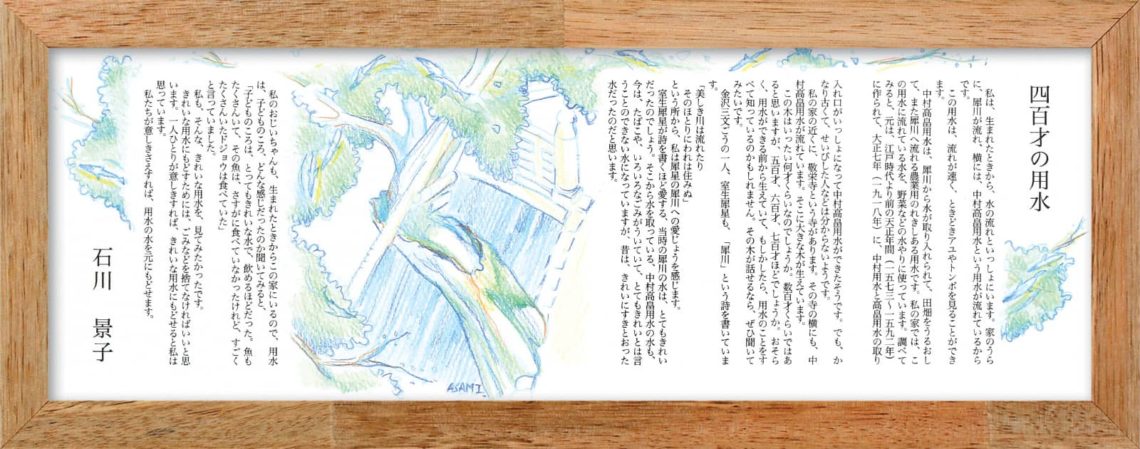 四百才の用水
私は、生まれたときから、水の流れといっしょにいます。家のうら
に、犀川が流れ、横には、中村高畠用水という用水が流れているから
です。
この用水は、流れが速く、ときどきアユやトンボを見ることができ
ます。
中村高畠用水は、犀川から水が取り入れられて、田畑をうるおし
て、また犀川へ流れる農業用のれきしある用水です。私の家では、こ
の用水に流れている水を、野菜などの水やりに使っています。調べて
みると、元は、江戸時代より前の天正年間(一五七三〜一五九二年)
に作られて、大正七年(一九一八年)に、中村用水と高畠用水の取り
入れ口がいっしょになって中村高畠用水ができたそうです。でも、か
なり古くて、せいびした人などは分からないようです。
私の家の近くに、敬栄寺という寺があります。その寺の横にも、中
村高畠用水が流れています。そこに大きな木が生えています。
この木はいったい何才くらいなのでしょうか。数百才くらいではあ
ると思いますが、五百才、六百才、七百才ほどでしょうか。おそら
く、用水ができる前から生えていて、もしかしたら、用水のことをす
べて知っているのかもしれません。その木が話せるなら、ぜひ聞いて
みたいです。
金沢三文ごうの一人、室生犀星も、「犀川」という詩を書いていま
す。
「美しき川は流れたり
そのほとりにわれは住みぬ」
という所から、私は犀星の犀川への愛じょうを感じます。
室生犀星が詩を書くほど愛する、当時の犀川の水は、とてもきれい
だったのでしょう。そこから水を取っている、中村高畠用水の水も、
今は、たばこや、いろいろなごみがういていて、とてもきれいとは言
うことのできない水になっていますが、昔は、きれいにすきとおった
水だったのだと思います。
私のおじいちゃんも、生まれたときからこの家にいるので、用水
は、子どものころ、どんな感じだったのか聞いてみると、
「子どものころは、とってもきれいな水で、飲めるほどだった。魚も
たくさんいて、その魚は、さすがに食べていなかったけれど、すごく
たくさんいたドジョウは食べていた」
と言っていました。
私も、そんな、きれいな用水を、見てみたかったです。
きれいな用水にもどすためには、ごみなどを捨てなければいいと思
います。一人ひとりが意しきすれば、きれいな用水にもどせると私は
思っています。
私たちが意しきさえすれば、用水の水を元にもどせます。
石川 景子
ASAMI